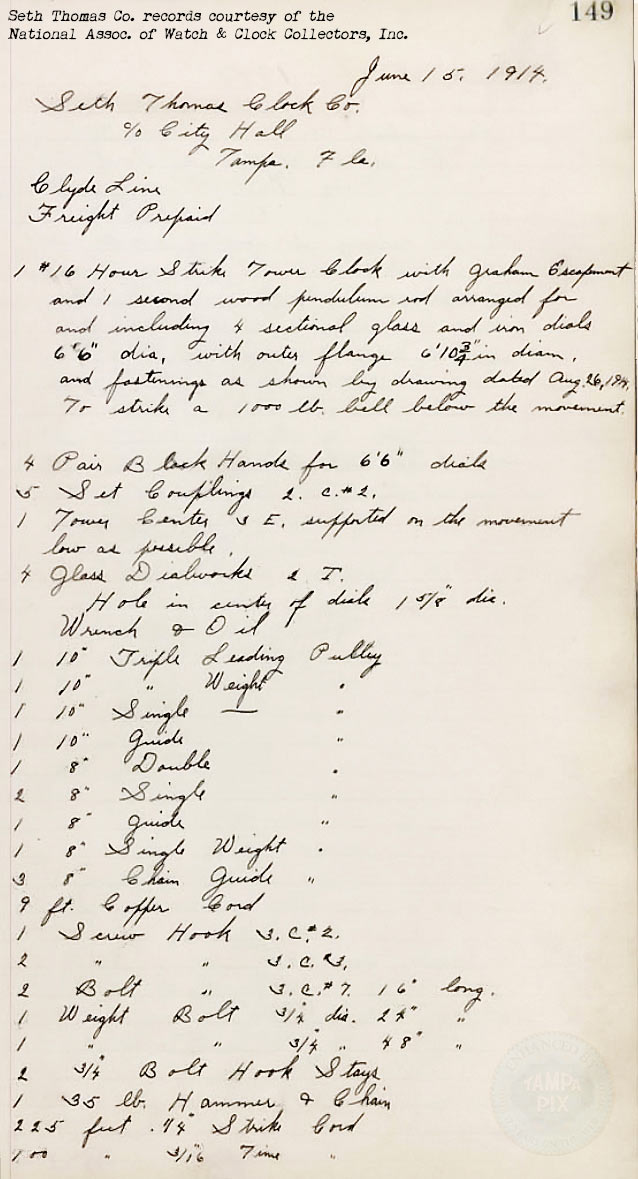 Seth Thomas Co. records courtesy of the
National Assoc. of Watch & Clock Collectors, Inc.
149
June 15, 1914.
Seth Thomas Clock Co.
c/o City Hall
Tampa. Fla.
Clyde Line
Freight Prepaid
1 #16 Hour Strike Tower Clock with Graham Escapement
and 1 second wood pendulum rod arranged for
and including 4 sectional glass and iron dials
6'6" dia, with outer flange 6'10 3/4" in diam,
and fastenings as shown by drawing dated Aug. 26, 1914.
To strike a 1000 lb. bell below the movement.
4 Pair Black Hands for 6'6" dials
5 Set Couplings 2. C.#2.
1 Tower Center 3 E. supported on the movement
low as possible.
4 Glass Dialworks 2 T.
Hole in center of dials 1 5/8" dia.
Wrench & Oil
1 10" Triple Leading Pulley
1 10" " Weight "
1 10" Single — "
1 10" Guide "
1 8" Double "
2 8" Single "
1 8" Guide "
1 8" Single Weight "
3 8" Chain Guide "
9 ft. Copper Cord
1 Screw Hook 3.C.#2.
2 " " 3.C.#3.
2 Bolt " 3.C.#7. 16" long.
1 Weight Bolt 3/4 dia. 24" "
1 " " 3/4 " 48" "
2 3/4 Bolt Hook Stays
1 35 lb. Hammer & Chain
225 feet 1/4" Strike Cord
100 " 3/16 Time "
ENHANCED BY
TAMPA
PIX